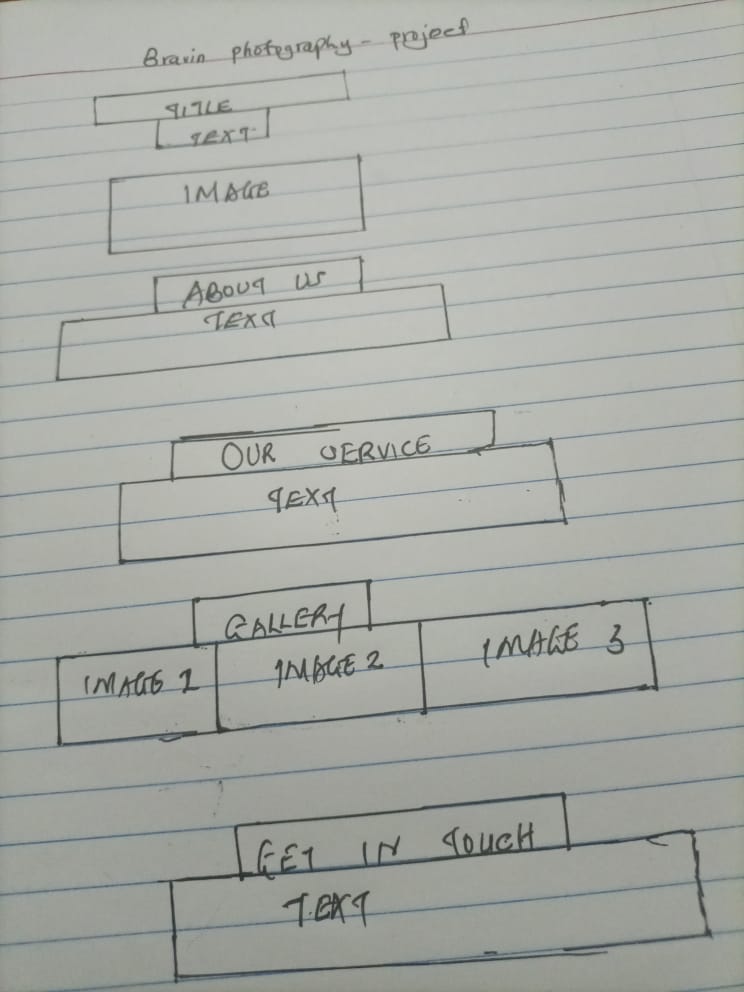 Bravin photography - project
TITLE
TEXT
IMAGE
ABOUT US
TEXT
OUR SERVICE
TEXT
GALLERY
IMAGE 1 IMAGE 2 IMAGE 3
GET IN TOUCH
TEXT